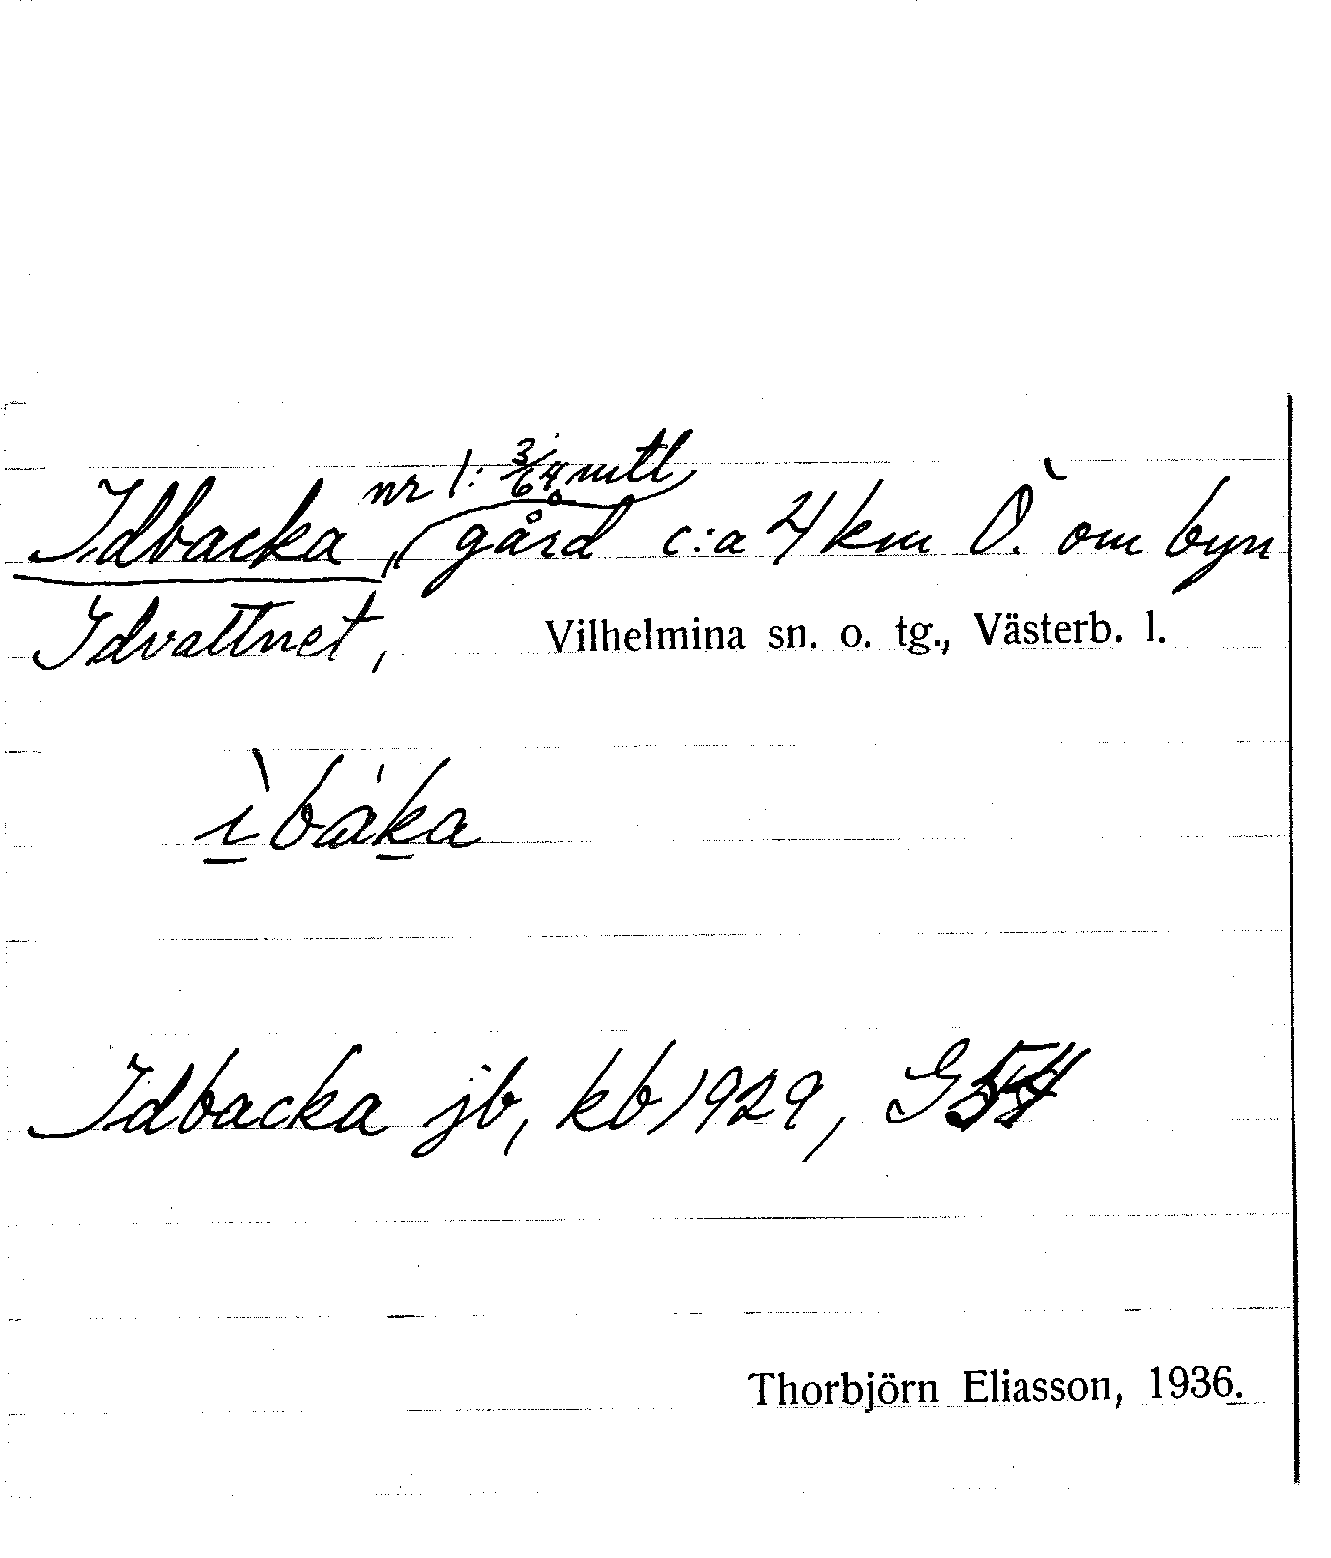 Idbacka, nr 1: 3/64 mtl gård c:a 4 km Ö. om byn
Idvattnet, Vilhelmina sn. o. tg., Västerb. l.
ìbáka
Idbacka jb, kb 1929, G54
Thorbjörn Eliasson, 1936.